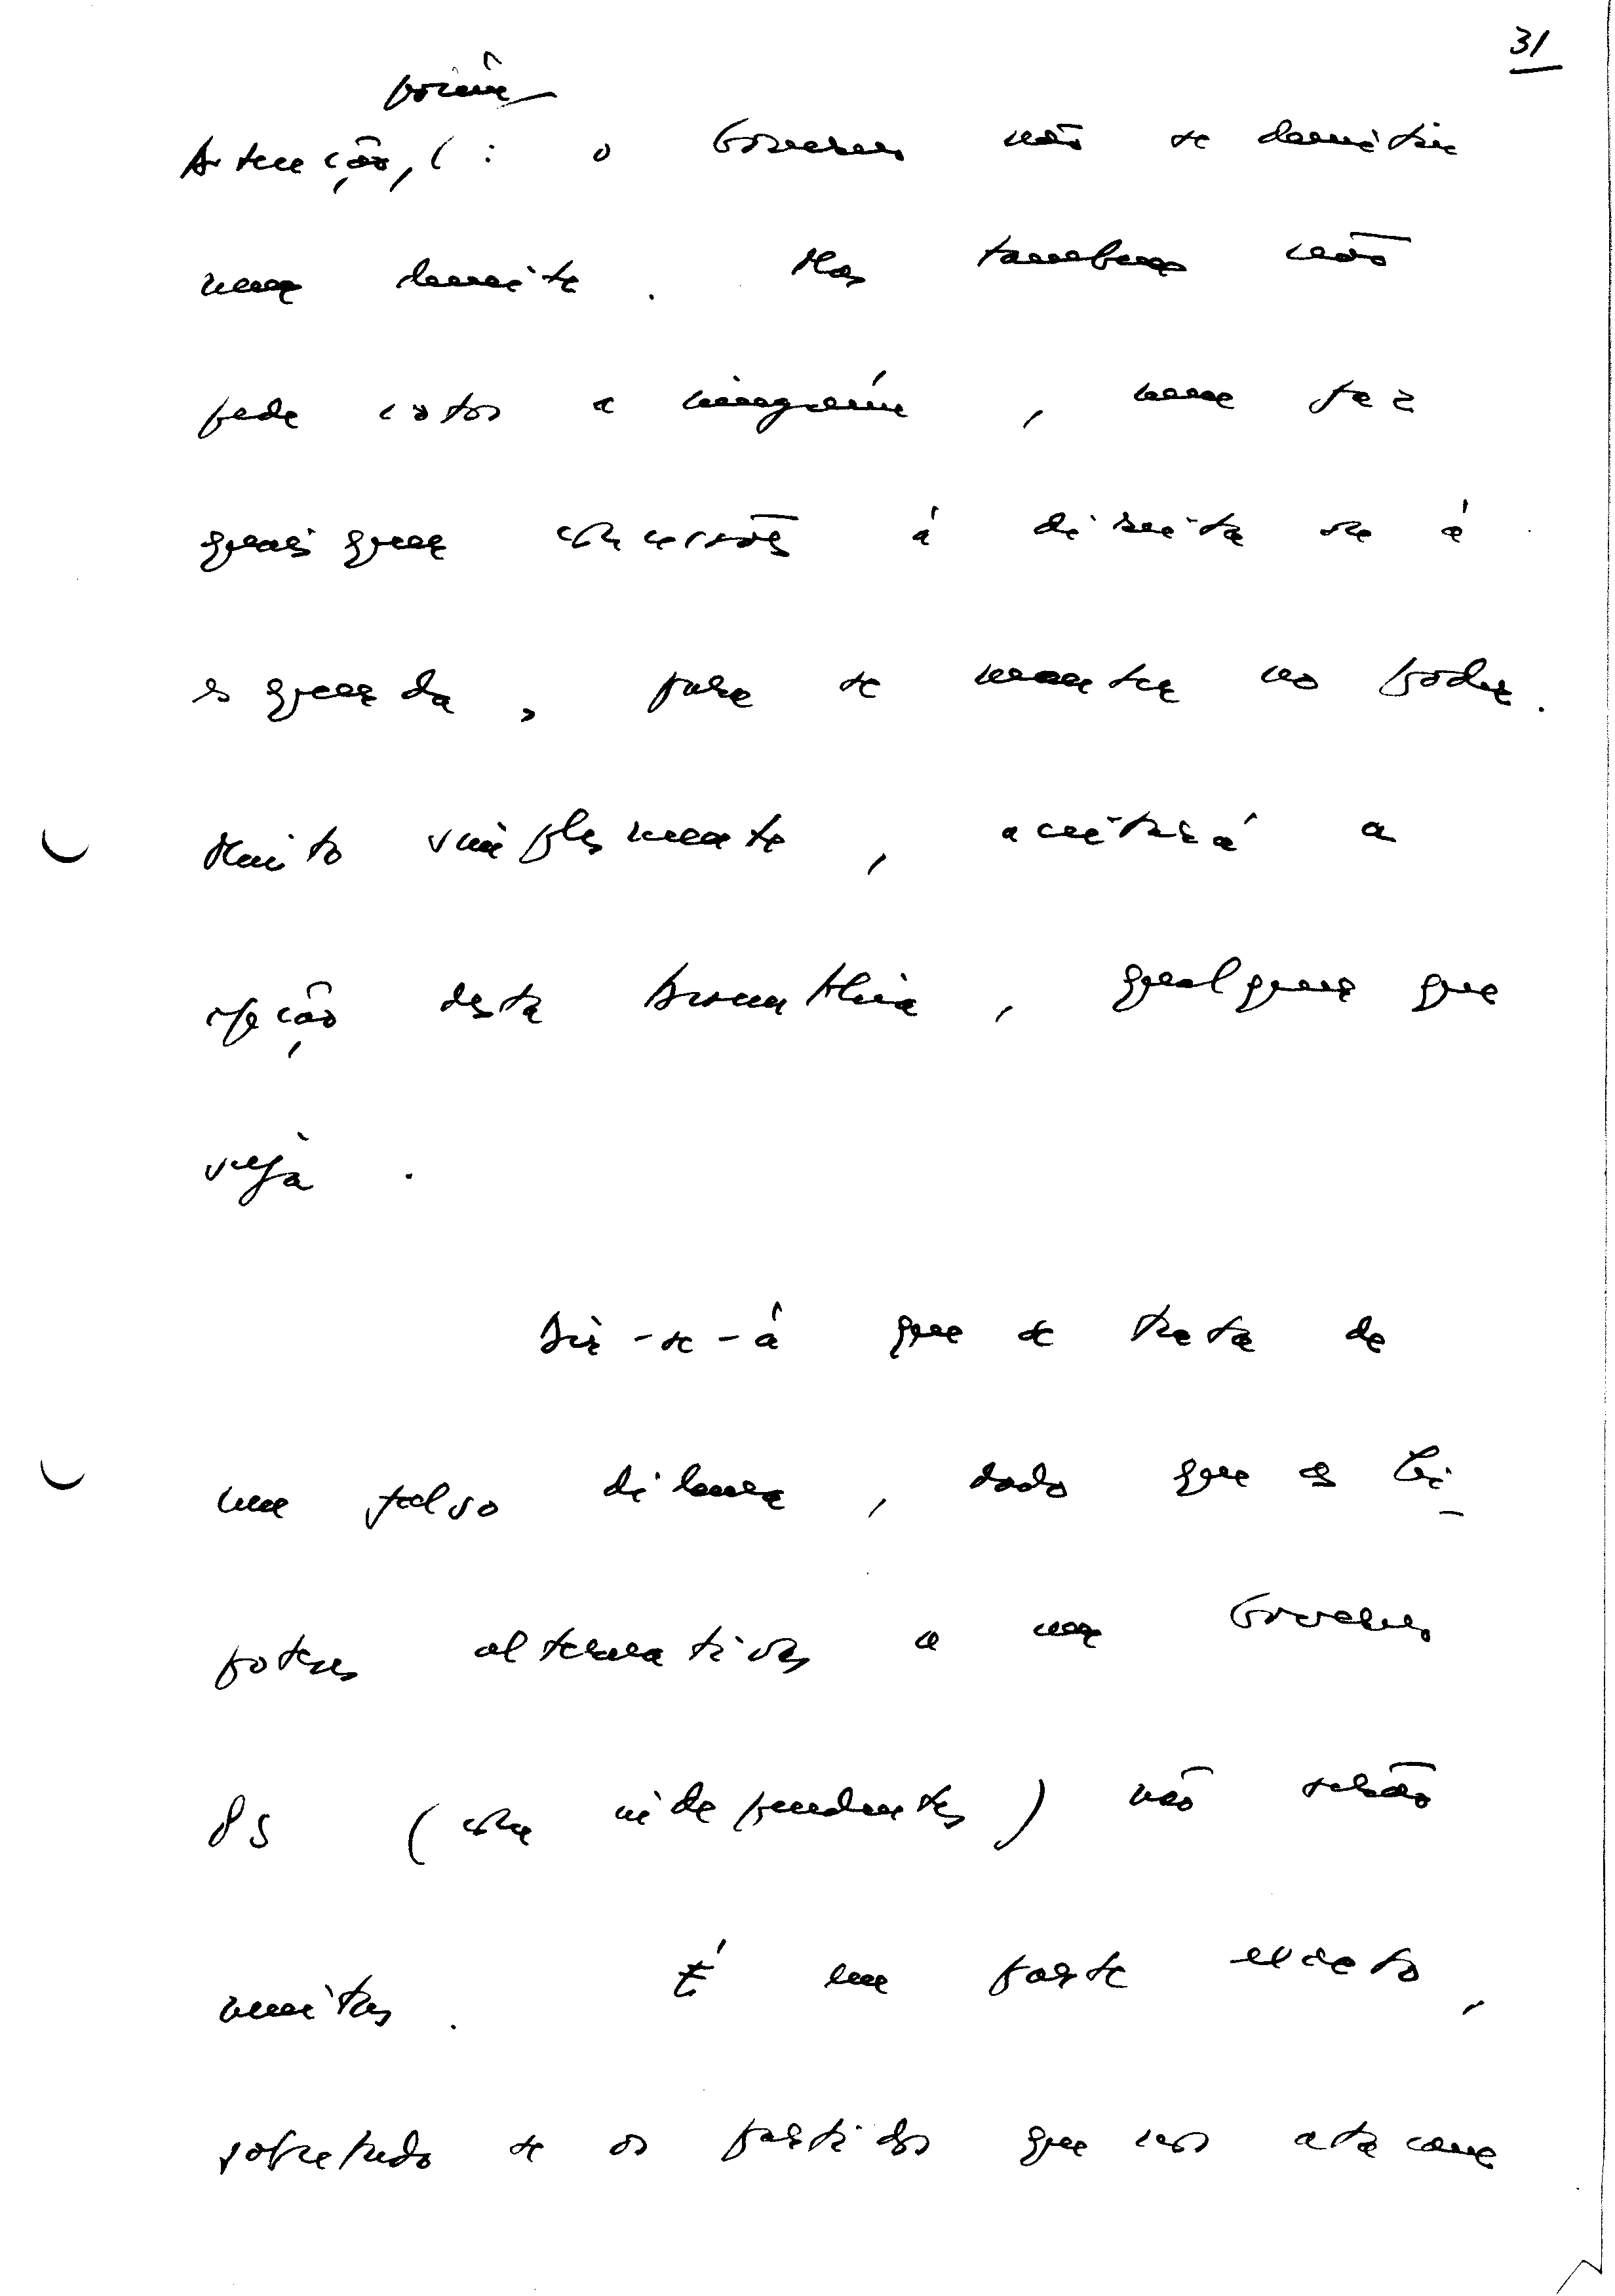 31
porém
Atenção, ( : o Governo não se demitiu
nem demite. Mas também não
pede votos a ninguém, nem fez
quaisquer concessões à direita ou à
esquerda, para se manter no poder.
Muito simplesmente, aceitará a
opção desta Assembleia, qualquer que
seja.
Dir-se-á que se trata de
um falso dilema, dado que as hi-
poteses alternativas a um Governo
PS (com independentes) não serão
muitas. É em parte exacto,
sobretudo se os partidos que nos atacam